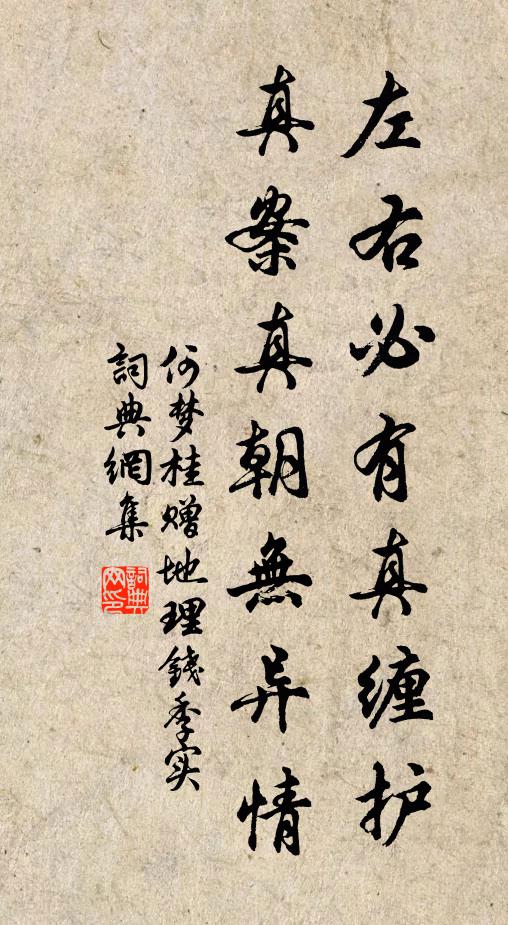 左右必有真缠护
真案真朝無异情
何梦桂赠地理錢季实
詞典網集
詞典網印